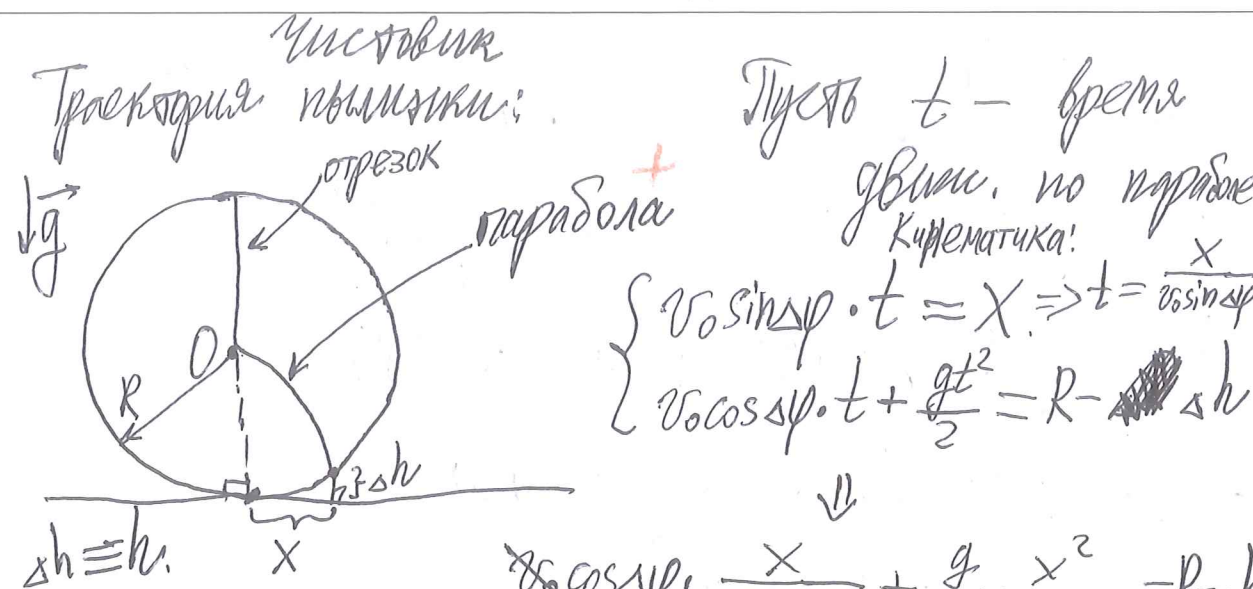 Чистовик
Траектория пылинки:
отрезок
парабола
+
g
O
R
Δh
x
Δh≡h.
Пусть t – время
движ. по параболе
Кинематика:
v₀sinΔφ·t = x ⇒ t = x/(v₀sinΔφ)
v₀cosΔφ·t + gt²/2 = R - Δh
⇓